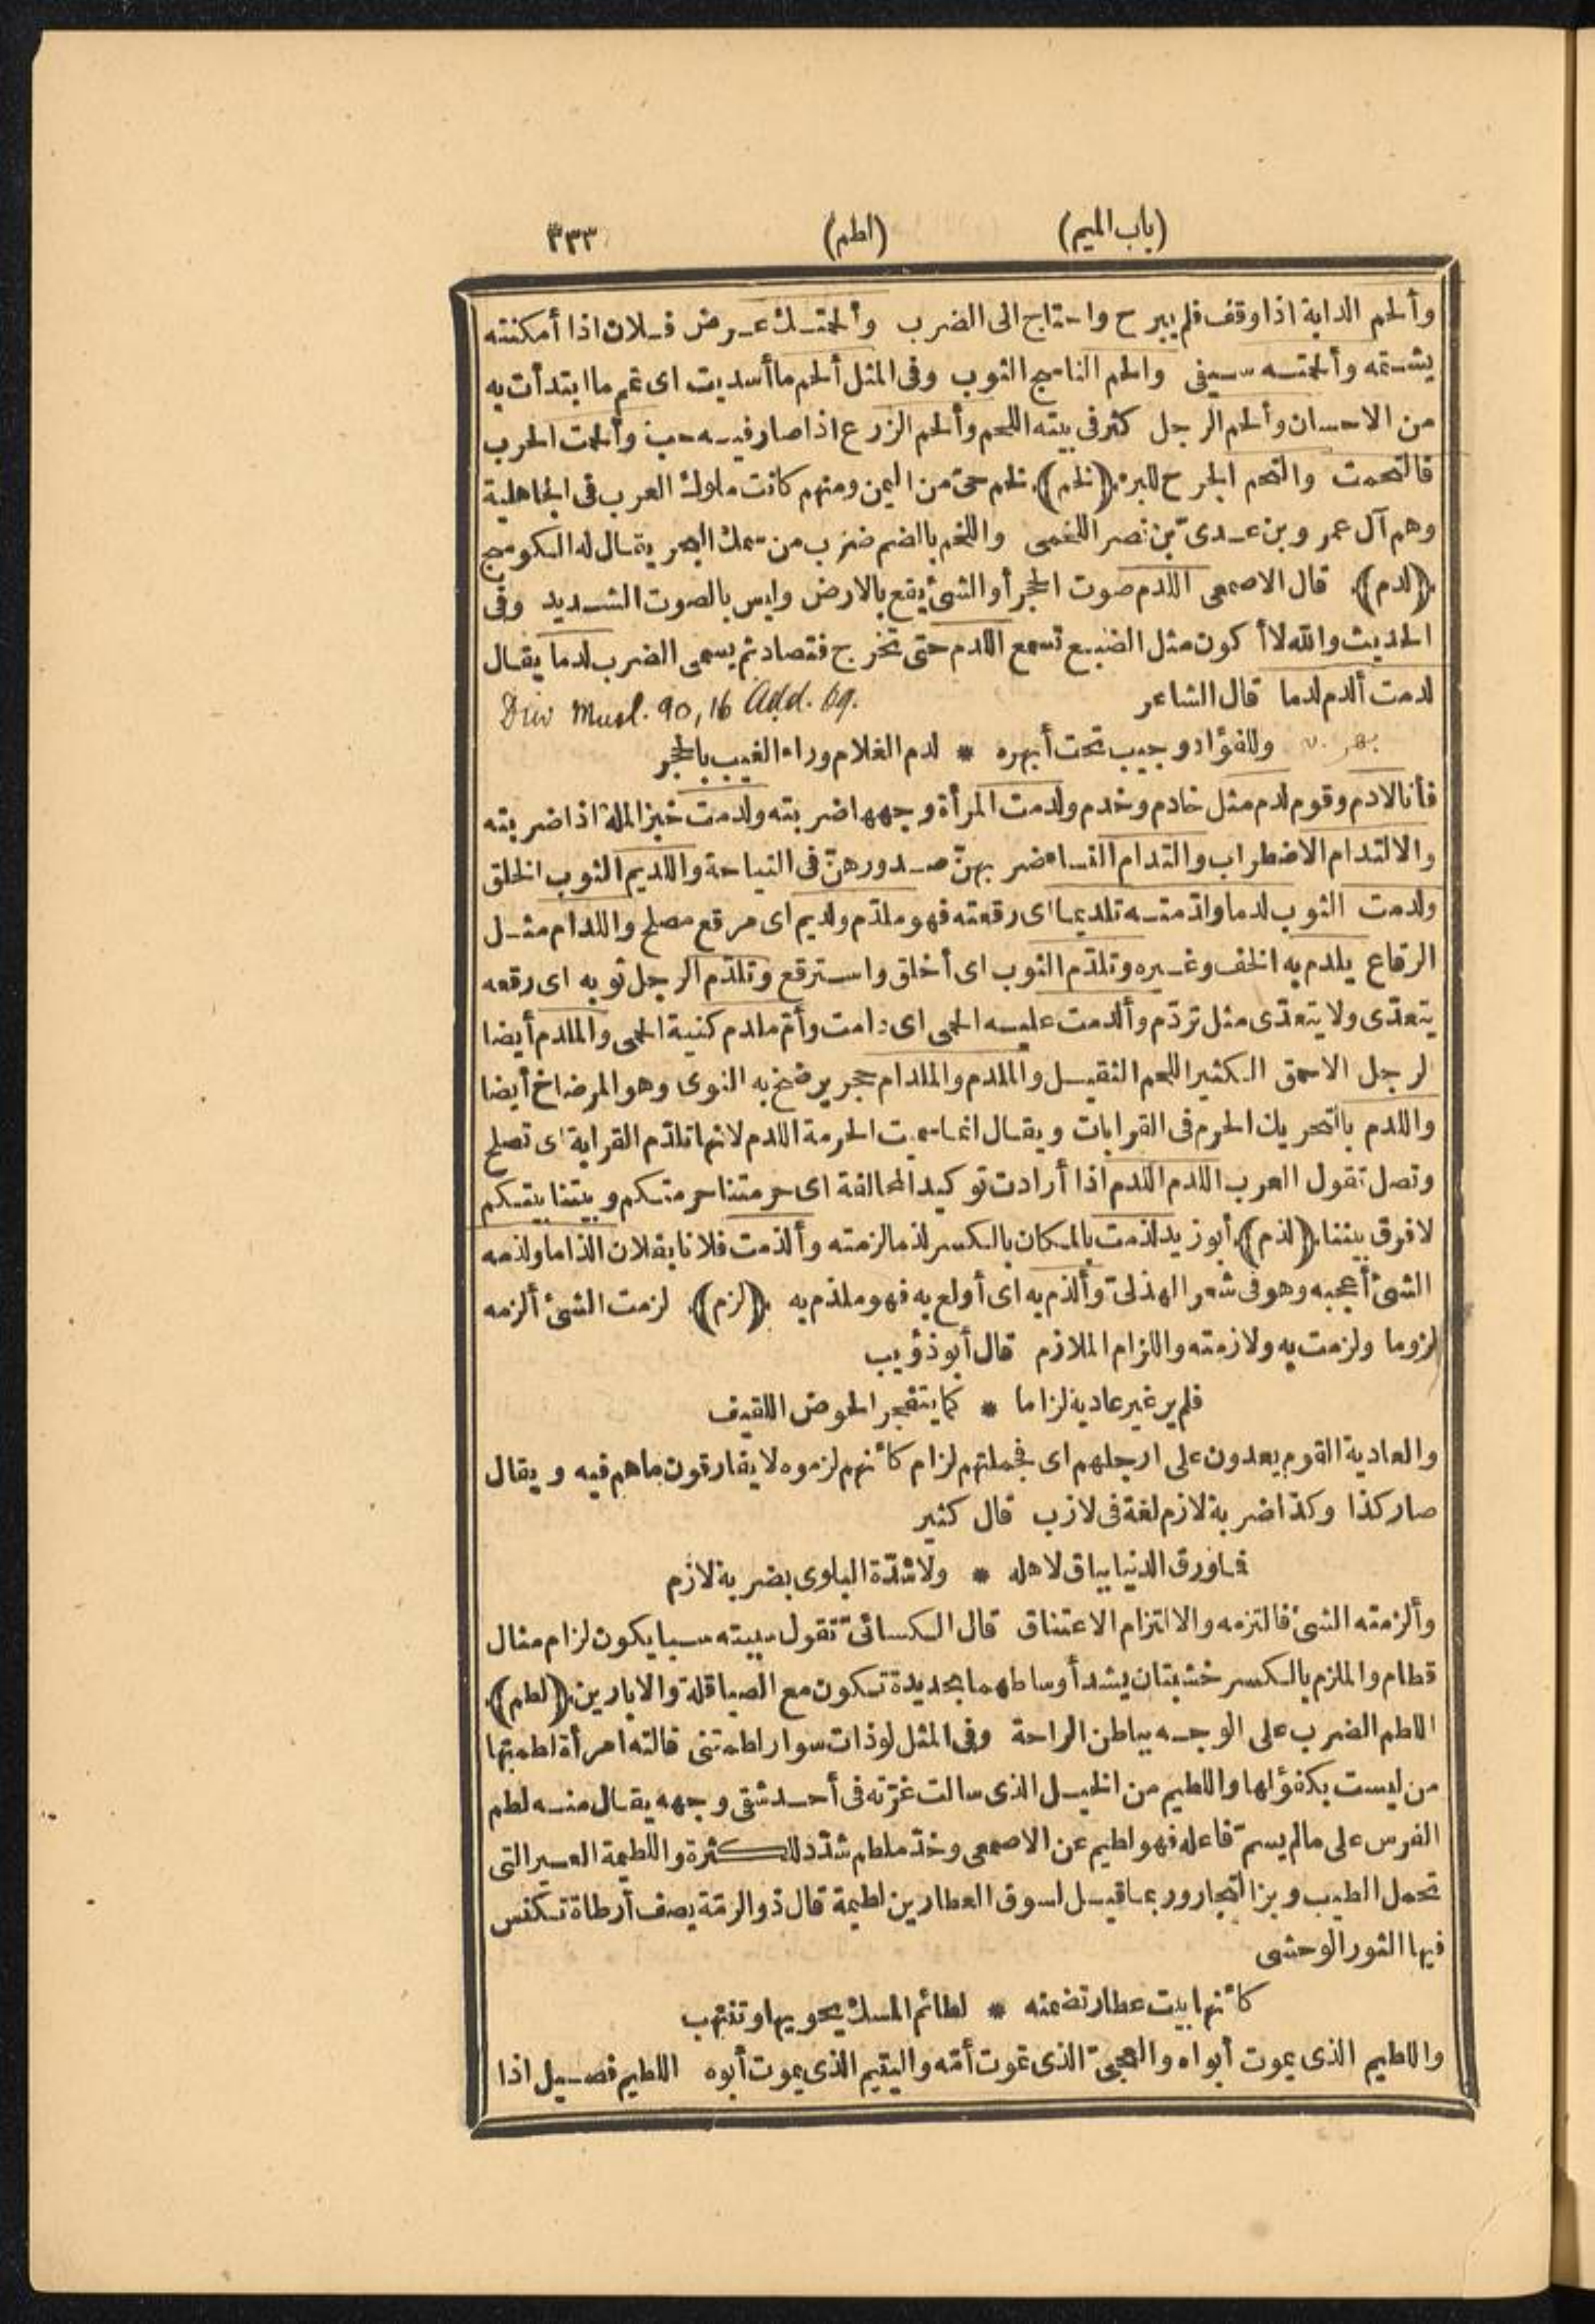 (باب الميم) (لطم) ٣٣٣
وألحم الدابة اذا وقف فلم يبرح واحتاج الى الضرب وألحمتك عرض فلان اذا أمكنته
يشتمه وألحمته سيفى والحم الناسج الثوب وفى المثل ألحم ما أسديت اى تمم ما ابتدأت به
من الاحسان وألحم الرجل كثر فى بيته اللحم وألحم الزرع اذا صار فيه حب وألحمت الحرب
فالتحمت والتحم الجرح للبرء ﴿لخم﴾ لخم حى من اليمن ومنهم كانت ملوك العرب فى الجاهلية
وهم آل عمرو بن عدىّ بن نصر اللخمى واللخم بالضم ضرب من سمك البحر يقال له الكوسج
﴿لدم﴾ قال الاصمعى اللدم صوت الحجر أو الشىء يقع بالارض وليس بالصوت الشديد وفى
الحديث والله لا أكون مثل الضبع تسمع اللدم حتى تخرج فتصاد ثم يسمى الضرب لدما يقال
لدمت ألدم لدما قال الشاعر Div Musl. 90, 16 Add. 69.
بهر v. وللفؤاد وجيب تحت أبهره * لدم الغلام وراء الغيب بالحجر
فأنا لادم وقوم لدم مثل خادم وخدم ولدمت المرأة وجهها ضربته ولدمت خبز الملة اذا ضربته
والالتدام الاضطراب والتدام النساء ضربهنّ صدورهنّ فى النياحة واللديم الثوب الخلق
ولدمت الثوب لدما ولدّمته تلديما اى رقعته فهو ملدّم ولديم اى مرقع مصلح واللدام مثل
الرقاع يلدم به الخف وغيره وتلدّم الثوب اى أخلق واسترقع وتلدّم الرجل ثوبه اى رقعه
يتعدّى ولا يتعدّى مثل تردّم وألدمت عليه الحمى اى دامت وأمّ ملدم كنية الحمى والملدم أيضا
لرجل الاحمق الكثير اللحم الثقيل والملدم والملدام حجر يرضخ به النوى وهو المرضاخ أيضا
واللدم بالتحريك الحرم فى القرابات ويقال انما سميت الحرمة اللدم لانها تلدّم القرابة اى تصلح
وتصل تقول العرب اللدم اللدم اذا أرادت توكيد المحالفة اى حرمتنا حرمتكم وبيتنا بيتكم
لا فرق بيننا ﴿لذم﴾ أبو زيد لذمت بالمكان بالكسر لذما لزمته وألذمت فلانا بفلان الذاما ولذمه
الشىء أعجبه وهو فى شعر الهذلىّ وألذم به اى أولع به فهو ملذم به ﴿لزم﴾ لزمت الشىء ألزمه
لزوما ولزمت به ولازمته واللزام الملازم قال أبو ذؤيب
فلم ير غير عادية لزاما * كما يتفجر الحوض اللقيف
والعادية القوم يعدون على ارجلهم اى فحملتهم لزام كأنهم لزموه لا يفارقون ما هم فيه ويقال
صار كذا وكذا ضربة لازم لغة فى لازب قال كثير
فما ورق الدنيا بباق لاهله * ولا شدّة البلوى بضربة لازم
وألزمته الشىء فالتزمه والالتزام الاعتناق قال الكسائىّ تقول سببته سبا يكون لزام مثال
قطام والملزم بالكسر خشبتان يشد أوساطهما بحديدة تكون مع الصياقلة والابارين ﴿لطم﴾
اللطم الضرب على الوجه بباطن الراحة وفى المثل لو ذات سوار لطمتنى قالته امرأة لطمتها
من ليست بكفؤ لها واللطيم من الخيل الذى سالت غرّته فى أحد شقى وجهه يقال منه لطم
الفرس على ما لم يسمّ فاعله فهو لطيم عن الاصمعى وخدّ ملطم شدّد للكثرة واللطيمة العير التى
تحمل الطيب وبز التجار وربما قيل لسوق العطارين لطيمة قال ذو الرمّة يصف أرطاة تكنس
فيها الثور الوحشى
كأنها بيت عطار تضمنه * لطائم المسك يحويها وتنتهب
واللطيم الذى يموت أبواه والعجىّ الذى تموت أمّه واليتيم الذى يموت أبوه اللطيم فصيل اذا